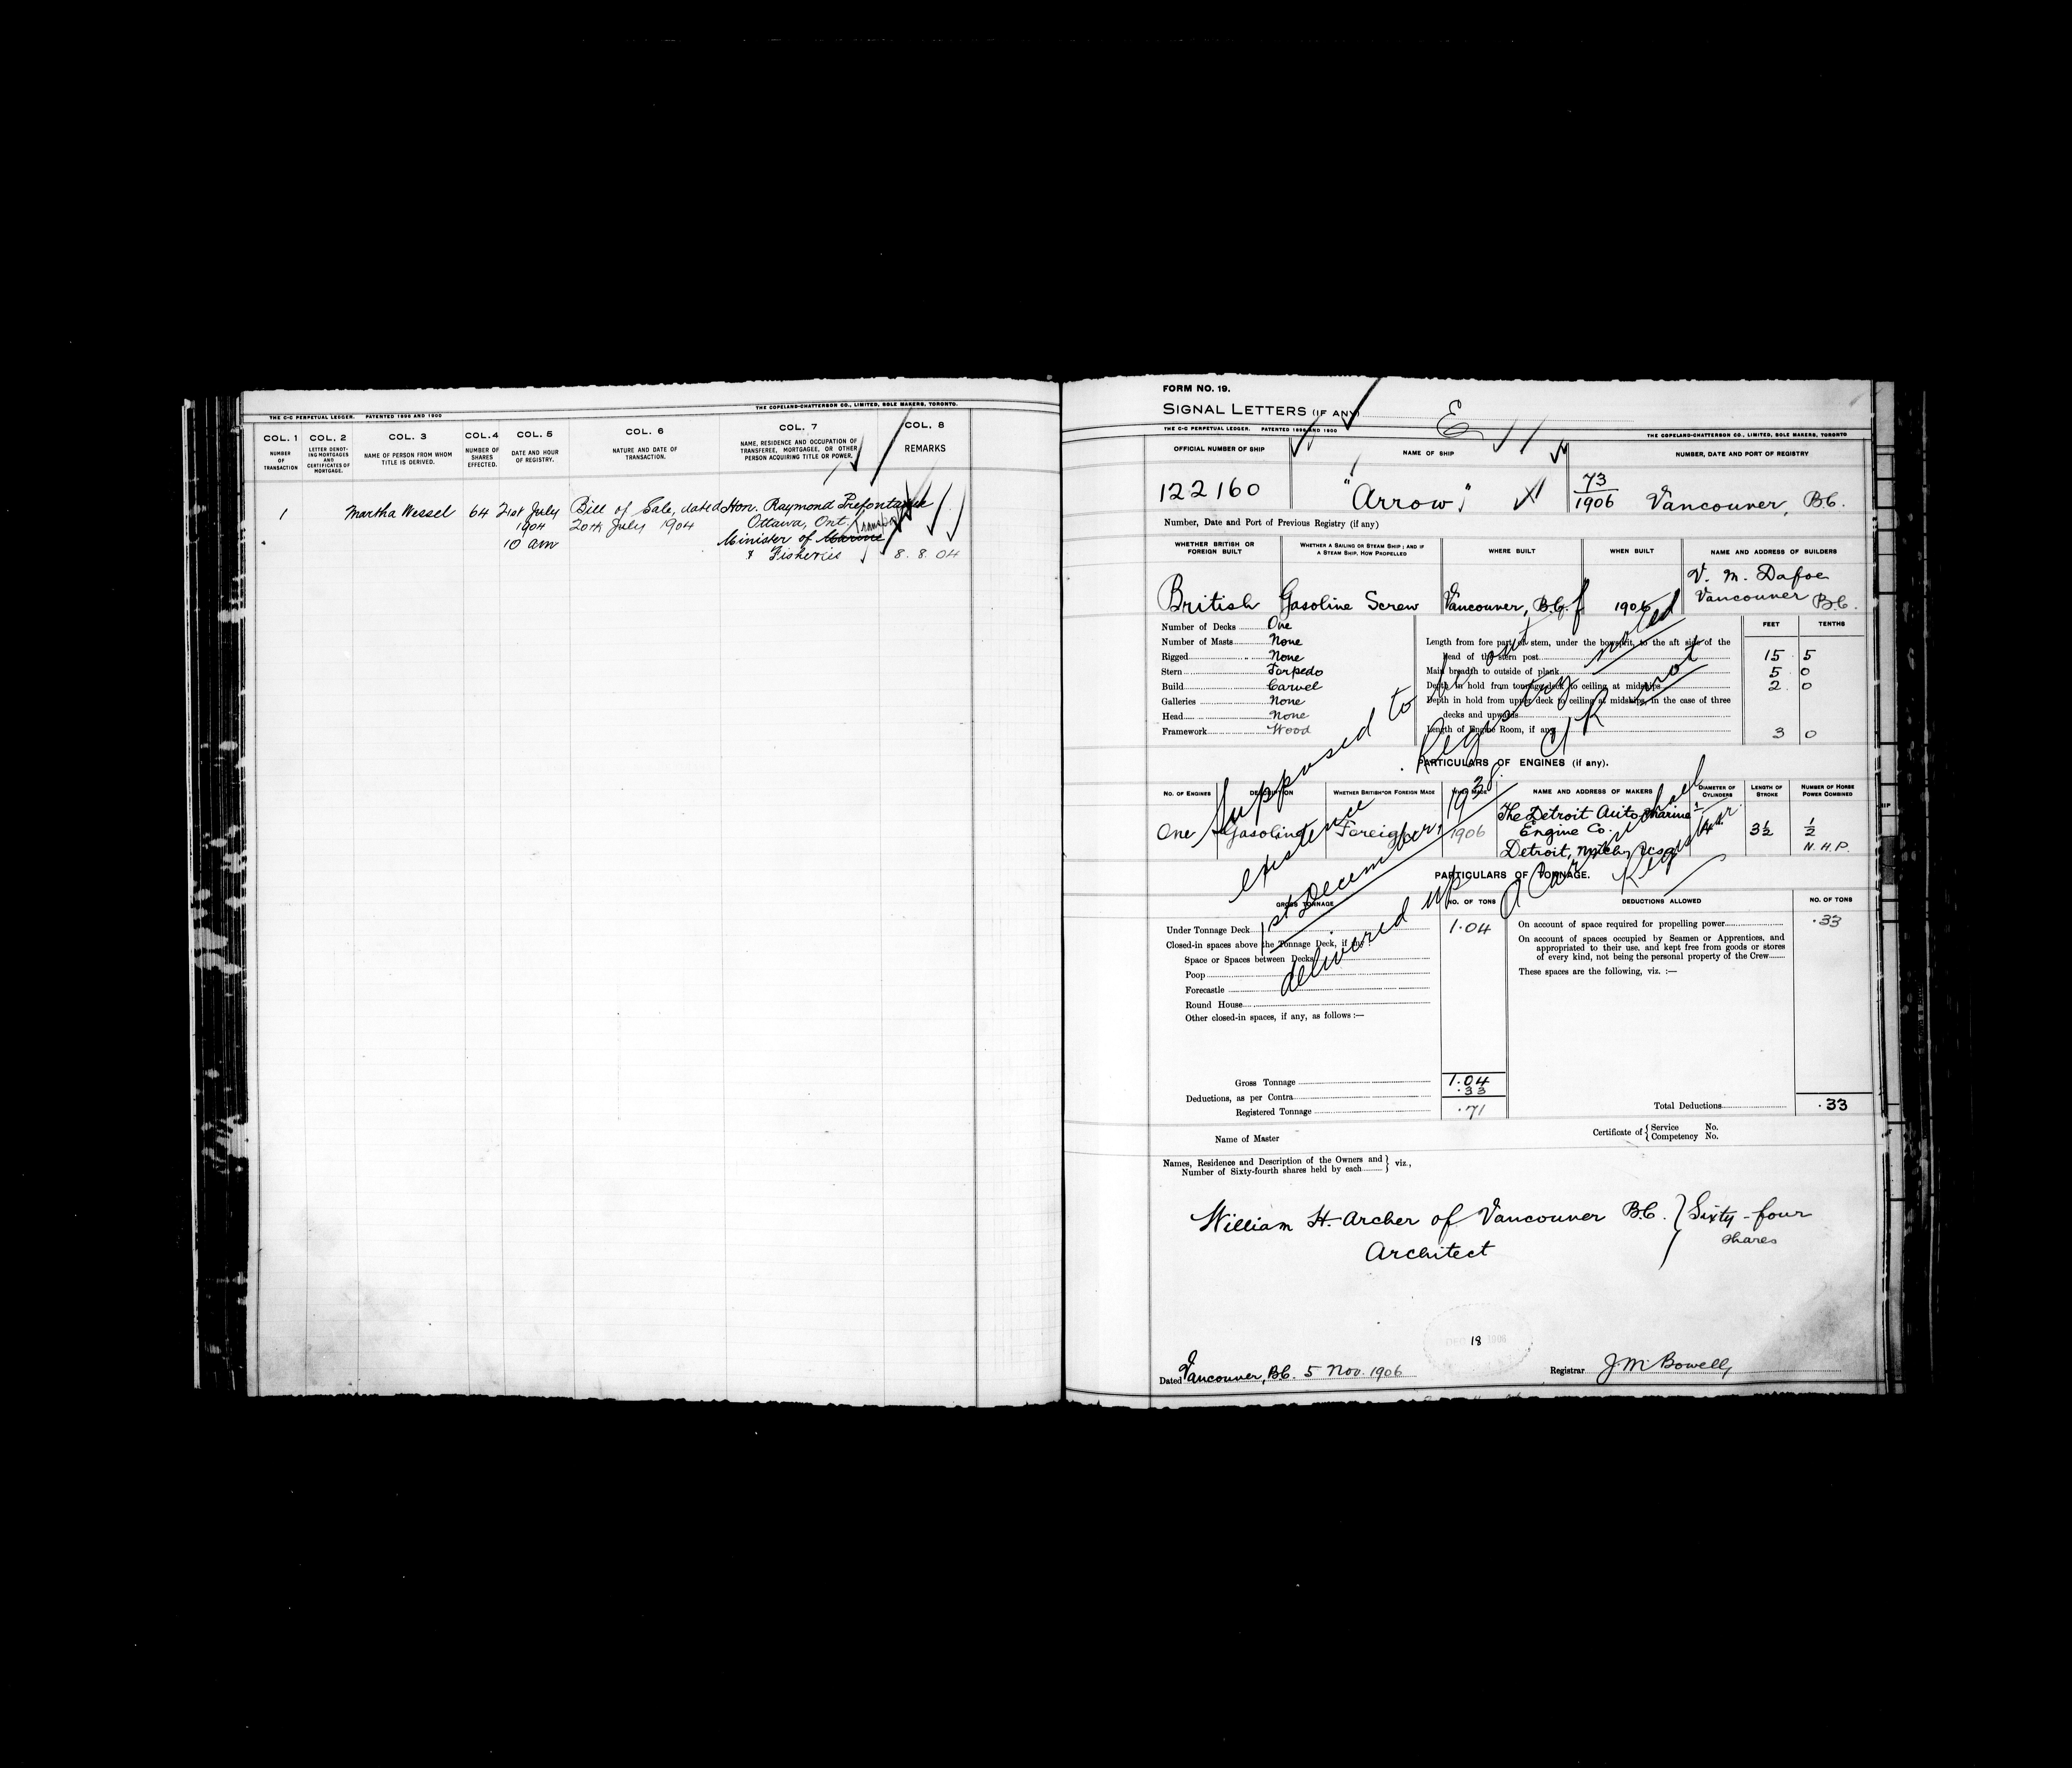 THE C-C PERPETUAL LEDGER. PATENTED 1896 AND 1900
THE COPELAND-CHATTERSON CO., LIMITED, SOLE MAKERS, TORONTO.
COL. 1 COL. 2 COL. 3 COL. 4 COL. 5 COL. 6 COL. 7 COL. 8
NUMBER OF TRANSACTION
LETTER DENOTING MORTGAGES AND CERTIFICATES OF MORTGAGE.
NAME OF PERSON FROM WHOM TITLE IS DERIVED.
NUMBER OF SHARES EFFECTED.
DATE AND HOUR OF REGISTRY.
NATURE AND DATE OF TRANSACTION.
NAME, RESIDENCE AND OCCUPATION OF TRANSFEREE, MORTGAGEE, OR OTHER PERSON ACQUIRING TITLE OR POWER.
REMARKS
1 Martha Wessel 64 21st July Bill of Sale, dated Hon. Raymond Prefontaine
1904 20th July 1904 Ottawa, Ont.
10 am Minister of Marine
& Fisheries 8.8.04
FORM NO. 19.
SIGNAL LETTERS (IF ANY)
E
THE C-C PERPETUAL LEDGER. PATENTED 1896 AND 1900
THE COPELAND-CHATTERSON CO., LIMITED, SOLE MAKERS, TORONTO
OFFICIAL NUMBER OF SHIP NAME OF SHIP NUMBER, DATE AND PORT OF REGISTRY
122160 "Arrow" 73/1906 Vancouver, B.C.
Number, Date and Port of Previous Registry (if any)
WHETHER BRITISH OR FOREIGN BUILT
WHETHER A SAILING OR STEAM SHIP; AND IF A STEAM SHIP, HOW PROPELLED
WHERE BUILT
WHEN BUILT
NAME AND ADDRESS OF BUILDERS
V. M. Dafoe
Vancouver B.C.
British Gasoline Screw Vancouver, B.C. 1906
Number of Decks One
Number of Masts None
Rigged None
Stern Torpedo
Build Carvel
Galleries None
Head None
Framework Wood
FEET TENTHS
Length from fore part of stem, under the bowsprit, to the aft side of the
head of the stern post 15 5
Main breadth to outside of plank 5 0
Depth in hold from tonnage deck to ceiling at midships 2 0
Depth in hold from upper deck to ceiling at midships, in the case of three
decks and upwards
Length of Engine Room, if any 3 0
Supposed to be out of
existence. Registry noted
1st December, 1938. C/R not
delivered up
Registrar
PARTICULARS OF ENGINES (if any).
NO. OF ENGINES DESCRIPTION WHETHER BRITISH OR FOREIGN MADE WHEN MADE NAME AND ADDRESS OF MAKERS DIAMETER OF CYLINDERS LENGTH OF STROKE NUMBER OF HORSE POWER COMBINED
One Gasoline Foreign 1906 The Detroit Auto Marine
Engine Co. 3½ ½
Detroit, Mich. N.H.P.
PARTICULARS OF TONNAGE.
GROSS TONNAGE NO. OF TONS DEDUCTIONS ALLOWED NO. OF TONS
Under Tonnage Deck 1.04
Closed-in spaces above the Tonnage Deck, if any
Space or Spaces between Decks
Poop
Forecastle
Round House
Other closed-in spaces, if any, as follows :—
On account of space required for propelling power .33
On account of spaces occupied by Seamen or Apprentices, and
appropriated to their use, and kept free from goods or stores
of every kind, not being the personal property of the Crew
These spaces are the following, viz. :—
Gross Tonnage 1.04
Deductions, as per Contra .33
Registered Tonnage .71
Total Deductions .33
Name of Master
Certificate of { Service No.
Competency No.
Names, Residence and Description of the Owners and
Number of Sixty-fourth shares held by each } viz.,
William H. Archer of Vancouver B.C. } Sixty-four
Architect shares
18
Dated Vancouver, B.C. 5 Nov. 1906
Registrar J M Bowell